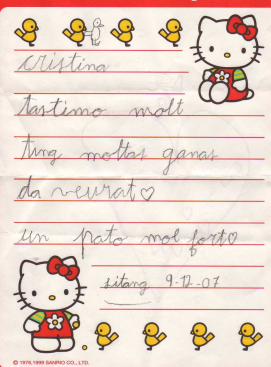 cristina
tastimo molt
ting moltas ganas
da veurat♡
un pato mol forto
sitang 9-12-07
© 1976,1999 SANRIO CO., LTD.